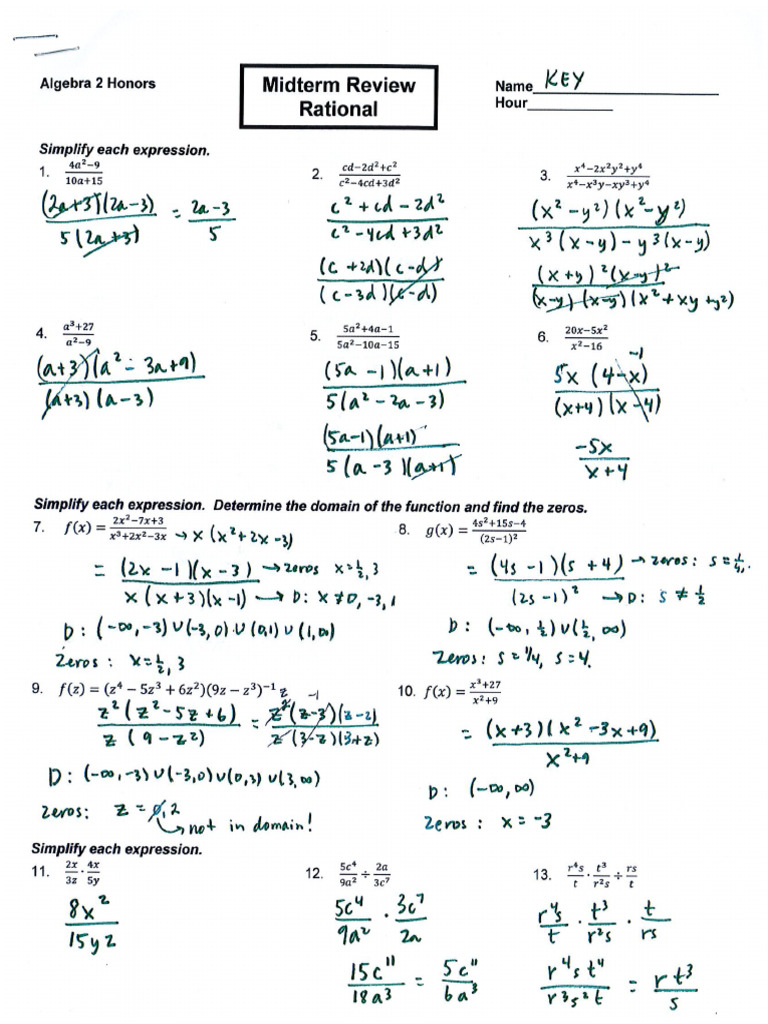 Algebra 2 Honors
Midterm Review
Rational
Name KEY
Hour
Simplify each expression.
1. (4a²−9)/(10a+15)
(2a+3)(2a−3)/5(2a+3) = (2a−3)/5
2. (cd−2d²+c²)/(c²−4cd+3d²)
(c²+cd−2d²)/(c²−4cd+3d²)
(c+2d)(c−d)/(c−3d)(c−d)
3. (x⁴−2x²y²+y⁴)/(x⁴−x³y−xy³+y⁴)
(x²−y²)(x²−y²)/x³(x−y)−y³(x−y)
(x+y)²(x−y)²/(x−y)(x−y)(x²+xy+y²)
4. (a³+27)/(a²−9)
(a+3)(a²−3a+9)/(a+3)(a−3)
5. (5a²+4a−1)/(5a²−10a−15)
(5a−1)(a+1)/5(a²−2a−3)
(5a−1)(a+1)/5(a−3)(a+1)
6. (20x−5x²)/(x²−16)
−1
5x(4−x)/(x+4)(x−4)
−5x/(x+4)
Simplify each expression. Determine the domain of the function and find the zeros.
7. f(x) = (2x²−7x+3)/(x³+2x²−3x) → x(x²+2x−3)
= (2x−1)(x−3)/x(x+3)(x−1) → zeros x=½,3
→ D: x≠0,−3,1
D: (−∞,−3)∪(−3,0)∪(0,1)∪(1,∞)
Zeros: x=½,3
8. g(x) = (4s²+15s−4)/(2s−1)²
= (4s−1)(s+4)/(2s−1)² → zeros: s=¼,
→ D: s≠½
D: (−∞,½)∪(½,∞)
Zeros: s=1/4, s=4.
9. f(z) = (z⁴ − 5z³ + 6z²)(9z − z³)⁻¹
z −1
z²(z²−5z+6)/z(9−z²) = z²(z−3)(z−2)/z(3−z)(3+z)
D: (−∞,−3)∪(−3,0)∪(0,3)∪(3,∞)
Zeros: z=0,2
→ not in domain!
10. f(x) = (x³+27)/(x²+9)
= (x+3)(x²−3x+9)/x²+9
D: (−∞,∞)
Zeros: x=−3
Simplify each expression.
11. 2x/3z · 4x/5y
8x²/15yz
12. 5c⁴/9a² ÷ 2a/3c⁷
5c⁴/9a² · 3c⁷/2a
15c¹¹/18a³ = 5c¹¹/6a³
13. r⁴s/t · t³/r²s ÷ rs/t
r⁴s/t · t³/r²s · t/rs
r⁴st⁴/r³s²t = rt³/s